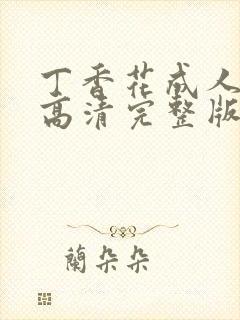 丁香花成人
高清完整版
蘭朵朵